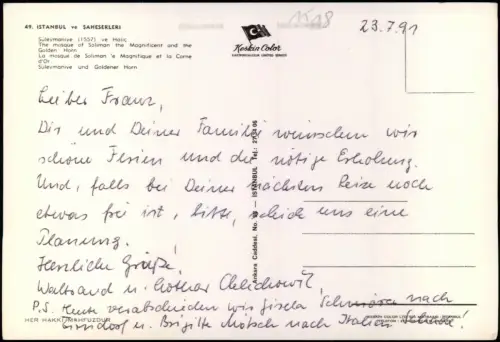 49. İSTANBUL ve ŞAHESERLERİ
Süleymaniye (1557) ve Haliç
The mosque of Soliman the Magnificent and the
Golden Horn
La mosque de Soliman le Magnifique et la Corne
d'Or
Süleymaniye und Goldener Horn
Keskin Color
1518
23.7.91
Lieber Franz,
Dir und Deiner Familie wünschen wir
schöne Ferien und die nötige Erholung.
Und, falls bei Deiner nächsten Reise noch
etwas frei ist, bitte, schicke uns eine
Planung.
Herzliche Grüße!
Waltraud u. Lothar
P.S. Heute verabschieden wir Gisela nach
u. Brigitte nach Italien!
Ankara Caddesi. No. — İSTANBUL Tel.:
HER HAKKI MAHFUZDUR